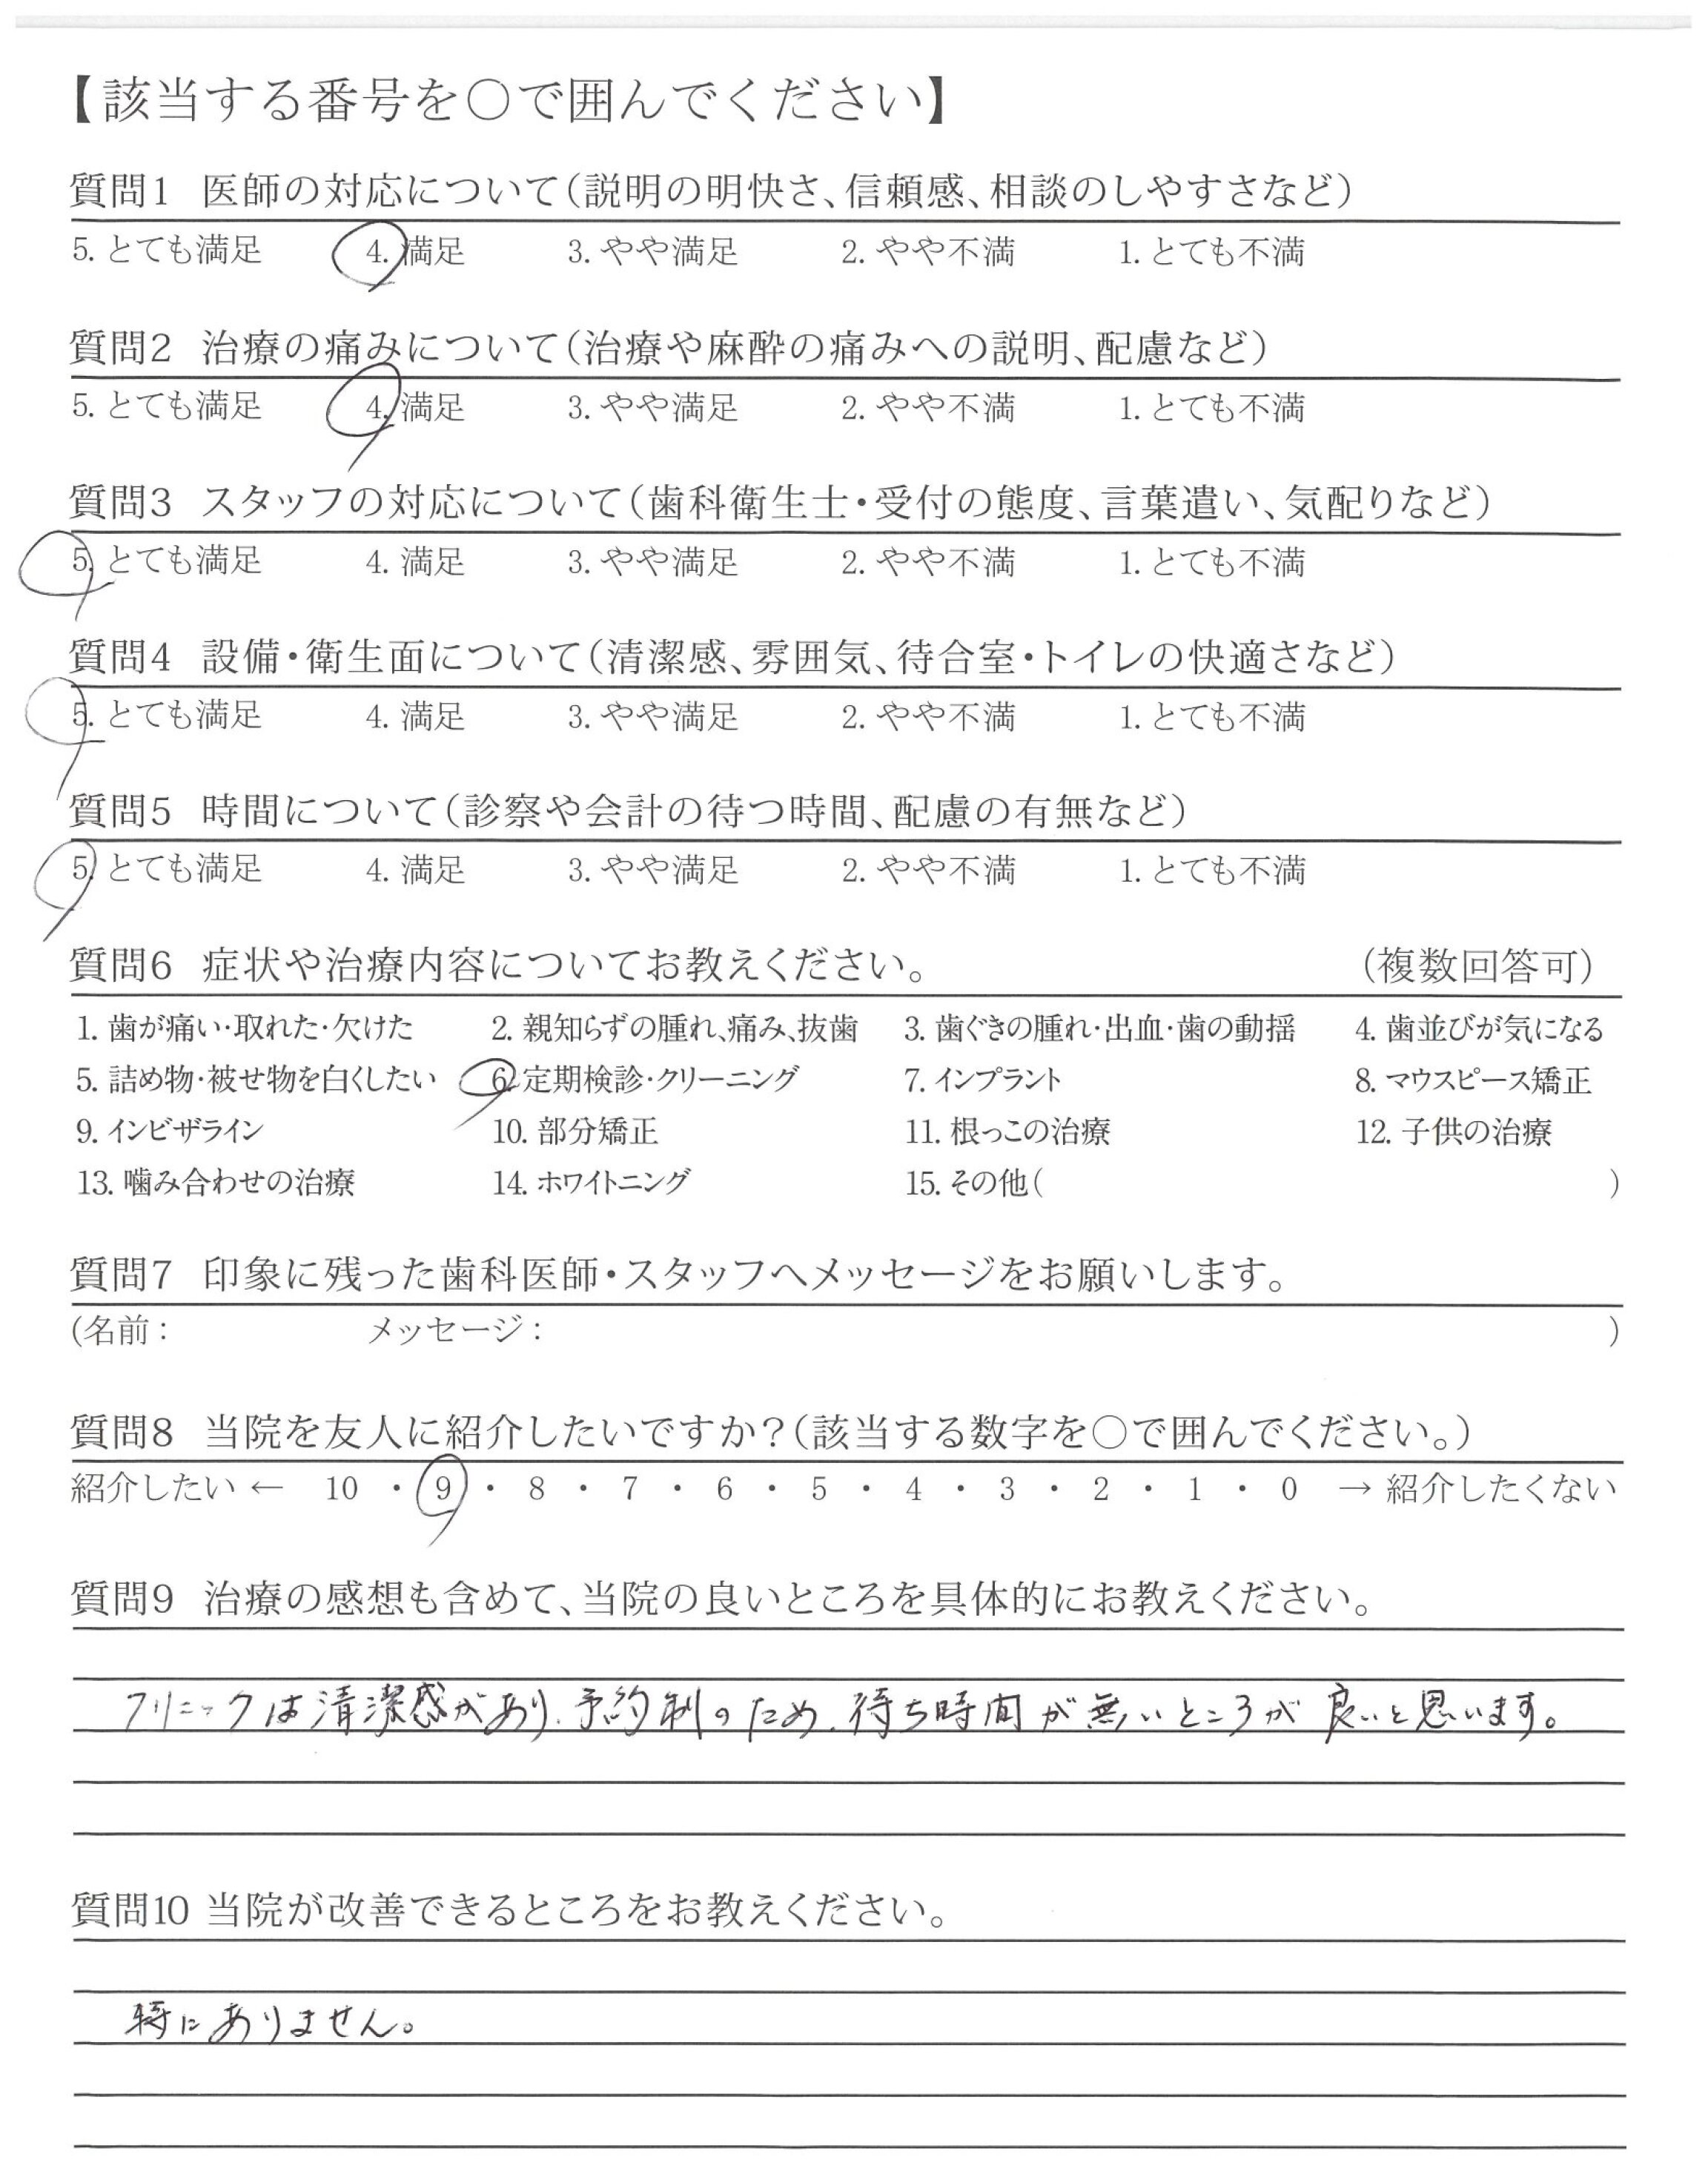 【該当する番号を○で囲んでください】
質問1 医師の対応について（説明の明快さ、信頼感、相談のしやすさなど）
5. とても満足 4. 満足 3. やや満足 2. やや不満 1. とても不満
質問2 治療の痛みについて（治療や麻酔の痛みへの説明、配慮など）
5. とても満足 4. 満足 3. やや満足 2. やや不満 1. とても不満
質問3 スタッフの対応について（歯科衛生士・受付の態度、言葉遣い、気配りなど）
5. とても満足 4. 満足 3. やや満足 2. やや不満 1. とても不満
質問4 設備・衛生面について（清潔感、雰囲気、待合室・トイレの快適さなど）
5. とても満足 4. 満足 3. やや満足 2. やや不満 1. とても不満
質問5 時間について（診察や会計の待つ時間、配慮の有無など）
5. とても満足 4. 満足 3. やや満足 2. やや不満 1. とても不満
質問6 症状や治療内容についてお教えください。 （複数回答可）
1. 歯が痛い・取れた・欠けた 2. 親知らずの腫れ、痛み、抜歯 3. 歯ぐきの腫れ・出血・歯の動揺 4. 歯並びが気になる
5. 詰め物・被せ物を白くしたい 6. 定期検診・クリーニング 7. インプラント 8. マウスピース矯正
9. インビザライン 10. 部分矯正 11. 根っこの治療 12. 子供の治療
13. 噛み合わせの治療 14. ホワイトニング 15. その他（ ）
質問7 印象に残った歯科医師・スタッフへメッセージをお願いします。
(名前： メッセージ： )
質問8 当院を友人に紹介したいですか？（該当する数字を○で囲んでください。）
紹介したい ← 10 ・ 9 ・ 8 ・ 7 ・ 6 ・ 5 ・ 4 ・ 3 ・ 2 ・ 1 ・ 0 → 紹介したくない
質問9 治療の感想も含めて、当院の良いところを具体的にお教えください。
クリニックは清潔感があり、予約制のため、待ち時間が無いところが良いと思います。
質問10 当院が改善できるところをお教えください。
特にありません。